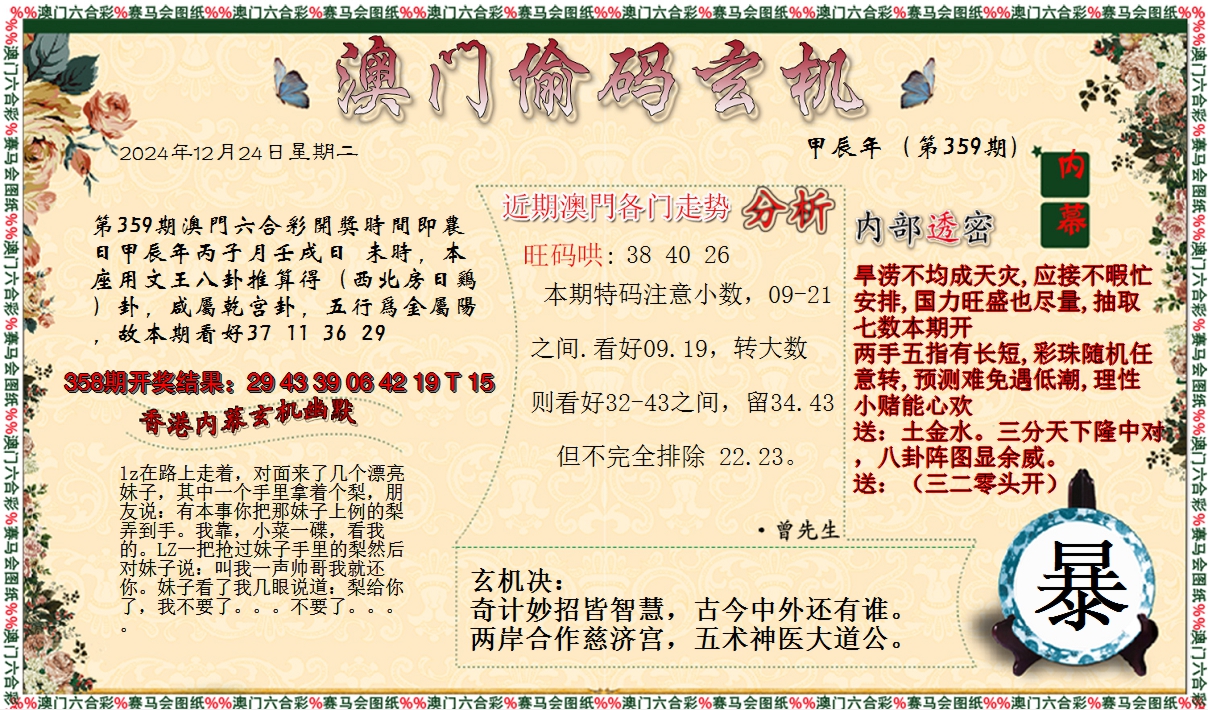 %%澳门六合彩%赛马会图纸%%澳门六合彩%赛马会图纸%%澳门六合彩%赛马会图纸%%澳门六合彩%赛马会图纸%%澳门六合彩%赛马会图纸%%澳门六合彩%赛马会图纸%%
澳门偷码玄机
2024年12月24日星期二
甲辰年（第359期）
内幕
第359期澳門六合彩開獎時間即農
日甲辰年丙子月壬戌日 未時，本
座用文王八卦推算得（西北房日鷄
）卦，咸屬乾宫卦，五行爲金屬陽
，故本期看好37 11 36 29
358期开奖结果：29 43 39 06 42 19 T 15
香港内幕玄机幽默
lz在路上走着，对面来了几个漂亮
妹子，其中一个手里拿着个梨，朋
友说：有本事你把那妹子上例的梨
弄到手。我靠，小菜一碟，看我
的。LZ一把抢过妹子手里的梨然后
对妹子说：叫我一声帅哥我就还
你。妹子看了我几眼说道：梨给你
了，我不要了。。。不要了。。。
。
近期澳門各门走势 分析
旺码哄: 38 40 26
本期特码注意小数，09-21
之间.看好09.19，转大数
则看好32-43之间，留34.43
但不完全排除 22.23。
·曾先生
玄机决：
奇计妙招皆智慧，古今中外还有谁。
两岸合作慈济宫，五术神医大道公。
内部透密
旱涝不均成天灾,应接不暇忙
安排,国力旺盛也尽量,抽取
七数本期开
两手五指有长短,彩珠随机任
意转,预测难免遇低潮,理性
小赌能心欢
送：土金水。三分天下隆中对
，八卦阵图显余威。
送：（三二零头开）
暴
%%澳门六合彩%赛马会图纸%%澳门六合彩%赛马会图纸%%澳门六合彩%赛马会图纸%%澳门六合彩%赛马会图纸%%澳门六合彩%赛马会图纸%%澳门六合彩%赛马会图纸%%